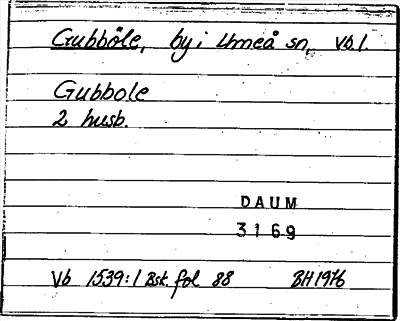 Gubböle, by i Umeå sn, Vb l.
Gubbole
2 husb.
DAUM
3169
Vb 1539:1 Bsk. fol 88 BH 1976